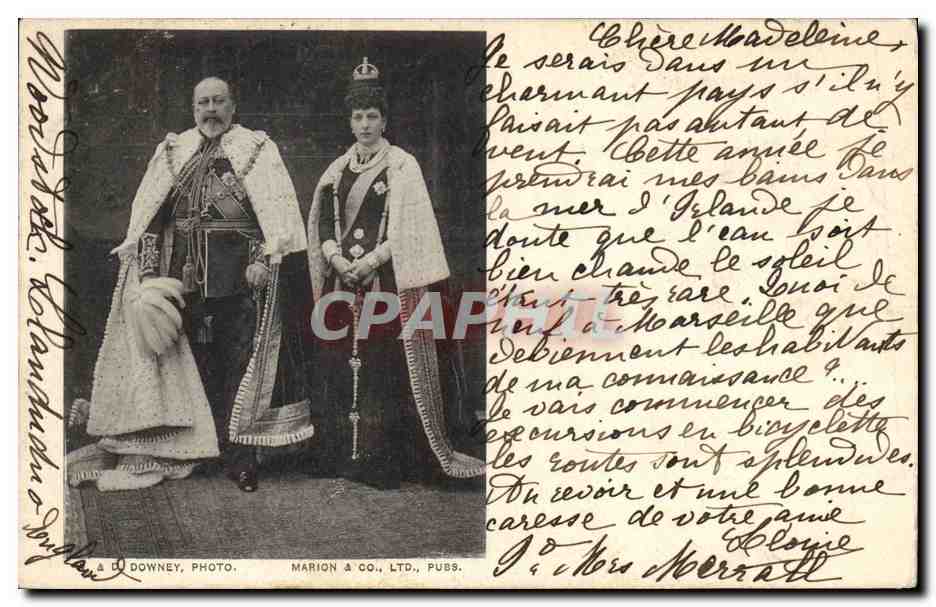 Chère Madeleine,
Je serais dans un
charmant pays s'il n'y
faisait pas autant de
vent. Cette année je
prendrai mes bains dans
la mer d'Irlande je
doute que l'eau soit
bien chaude le soleil
étant très rare. Quoi de
neuf à Marseille que
deviennent les habitants
de ma connaissance?..
Je vais commencer des
excursions en bicyclette
les routes sont splendides.
Au revoir et une bonne
caresse de votre amie
P/o Mrs
& D. DOWNEY, PHOTO. MARION & CO., LTD., PUBS.
CPARHIL